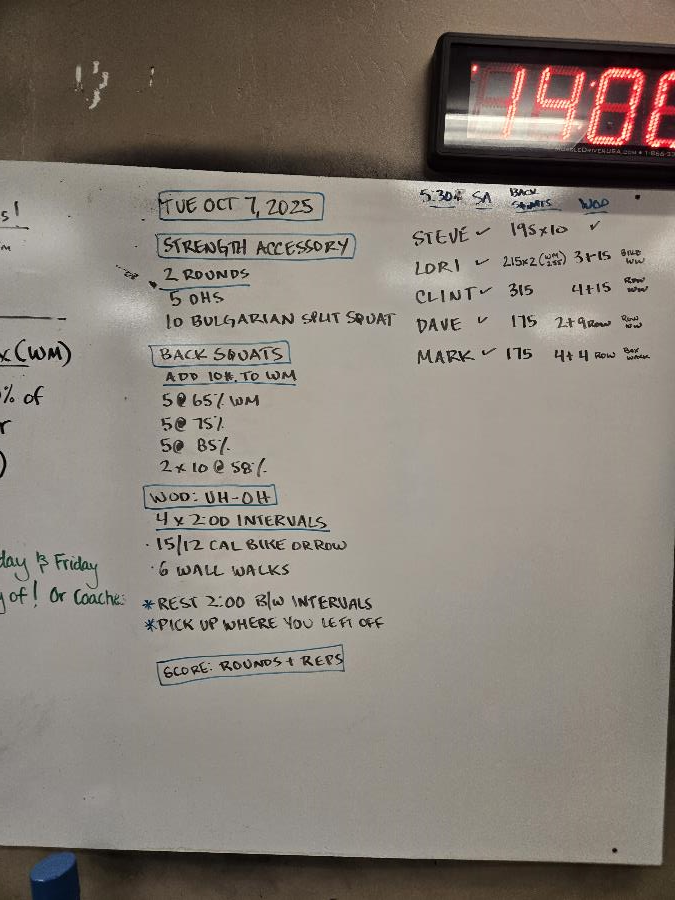 s!
x (WM)
% of
r
)
day & Friday
y of! Or Coaches
TUE OCT 7, 2025
STRENGTH ACCESSORY
2 ROUNDS
5 OHS
10 BULGARIAN SPLIT SQUAT
BACK SQUATS
ADD 10#. TO WM
5@ 65% WM
5@ 75%
5@ 85%
2 x 10 @ 58%
WOD: UH-OH
4 x 2:00 INTERVALS
· 15/12 CAL BIKE OR ROW
· 6 WALL WALKS
* REST 2:00 B/W INTERVALS
* PICK UP WHERE YOU LEFT OFF
SCORE: ROUNDS + REPS
5:30 SA BACK SQUATS WOD
STEVE ✓ 195x10 ✓
LORI ✓ 215x2 (WM 255) 3+15 BIKE WW
CLINT ✓ 315 4+15 ROW WW
DAVE ✓ 175 2+9 ROW ROW WW
MARK ✓ 175 4+4 ROW BOX WALK